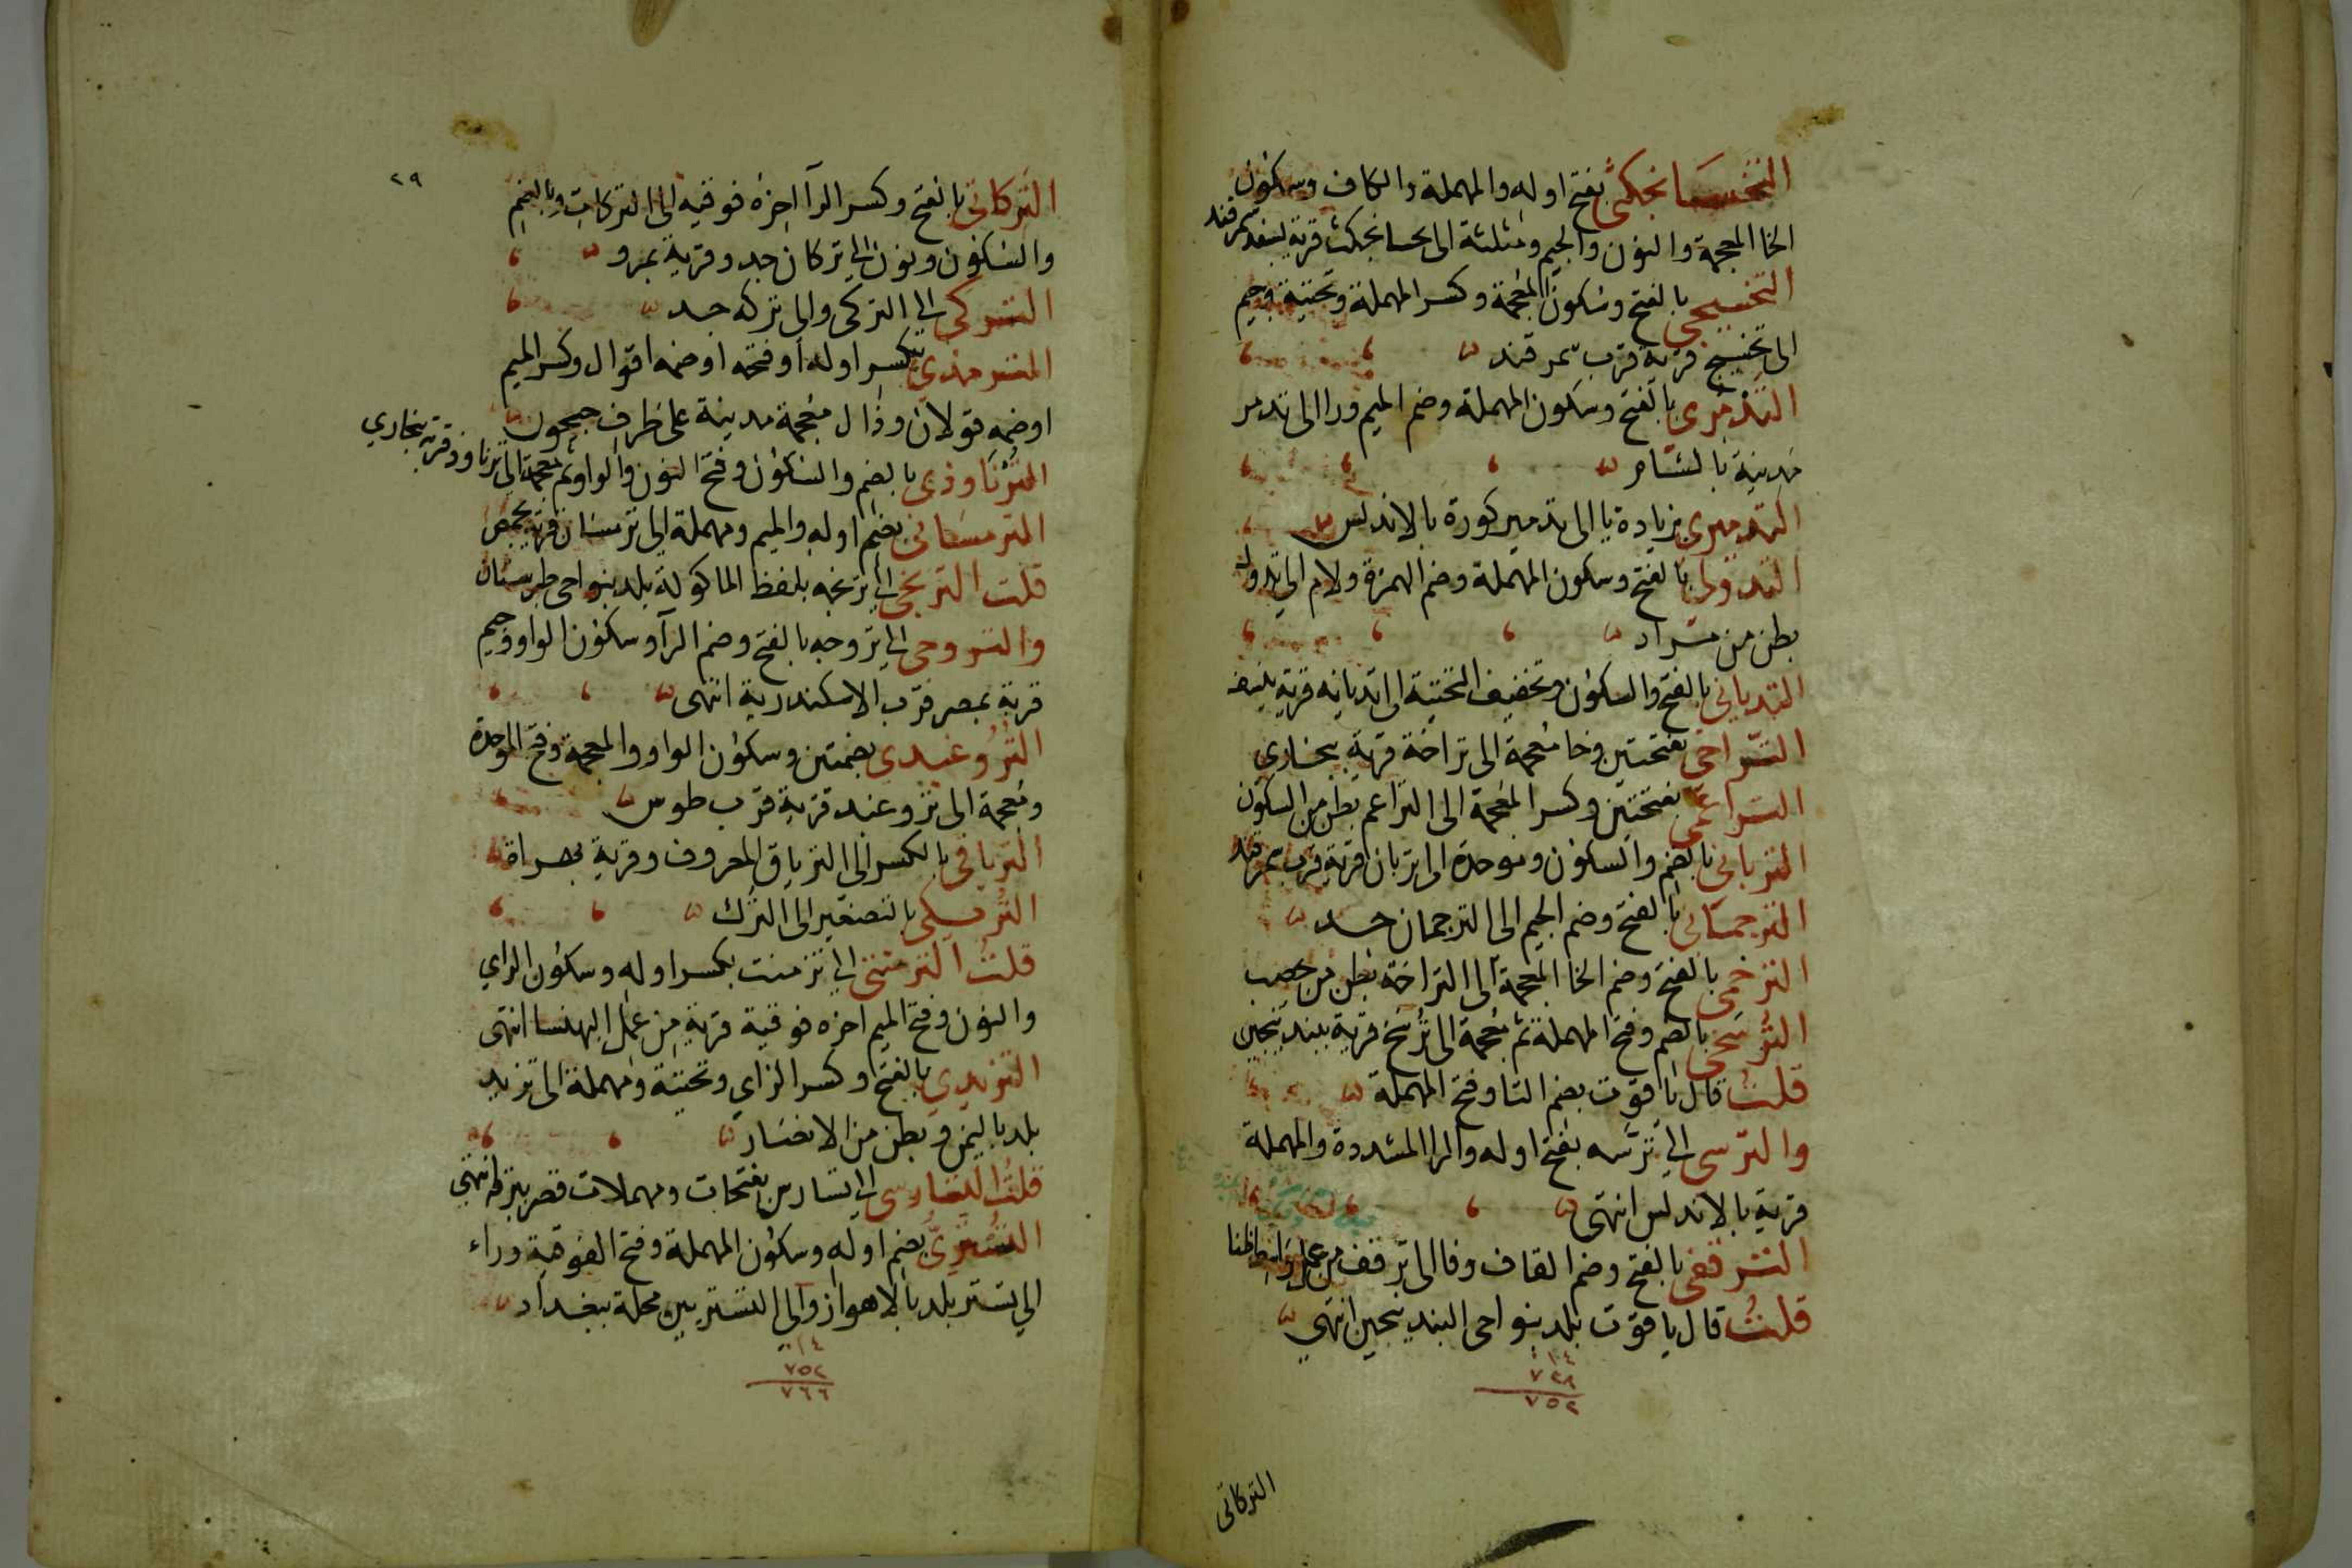 التخسانجكثى بفتح اوله والمهملة والكاف وسكون
الخا المعجمة والنون والجيم ومثلثة الى تخسانجكث قرية بسغد سمرقند
التخسيجى بالفتح وسكون المعجمة وكسر المهملة وتحتية وجيم
الى تخسيج قرية قرب سمرقند
التَدْمُرى بالفتح وسكون المهملة وضم الميم ورا الى تدمر
مدينة بالشام
التدميرى بزيادة يا الى تدمير كورة بالاندلس
التدؤلى بالفتح وسكون المهملة وضم الهمزة ولام الى تدؤل
بطن من مراد
التديانى بالفتح والسكون وتخفيف التحتية الى تديانه قرية بنسف
التراخى بفتحتين وخا معجمة الى تراخة قرية ببخارى
التراغمى بفتحتين وكسر المعجمة الى التراغم بطن من السكون
التربانى بالضم والسكون وموحدة الى تربان قرية قرب سمرقند
الترجمانى بالفتح وضم الجيم الى الترجمان جد
الترخمى بالفتح وضم الخا المعجمة الى التراخمة بطن من يحصب
التُرسَخى بالضم وفتح المهملة ثم معجمة الى تُرسَخ قرية ببندنيجين
قلت قال ياقوت بضم التا وفتح المهملة
والترسى الى ترسه بفتح اوله والرا المشددة والمهملة
قرية بالاندلس انتهى
الترقفى بالفتح وضم القاف وفا الى ترقف من عمل واسط ظنا
قلتُ قال ياقوت بلد بنواحى البندنيجين انتهى
١٤
٧٣٨
٧٥٢
التركاتى
٢٩
التركاتى بالفتح وكسر الرآ اخره فوقيه الى التركات وبالضم
والسكون ونون الى تركان جد وقرية بمرو
التركى الى التركى والى تركه جد
الترمذى بكسر اوله او فتحه او ضمه اقوال وكسر الميم
او ضمه قولان وذال معجمة مدينة على طرف جيحون
التُرْنَاوذى بالضم والسكون وفتح النون والواو ثم معجمة الى ترناوذ قرية ببخارى
الترمسانى بضم اوله والميم ومهملة الى ترمسان قرية بحمص
قلت الترنجى الى ترنجه بلفظ الماكولة بلد بنواحى طبرستان
والتروجى الى تروجه بالفتح وضم الرآ وسكون الواو وجيم
قرية بمصر قرب الاسكندرية انتهى
التُرُوغبدى بضمتين وسكون الواو والمعجمة وفتح الموحدة
ومعجمة الى تروغبد قرية قرب طوس
الترياقى بالكسر الى الترياق المعروف وقرية بهراة
التُريكى بالتصغير الى الترك
قلت التزمنتى الى تزمنت بكسر اوله وسكون الزاى
والنون وفتح الميم اخره فوقية قرية من عمل البهنسا انتهى
التزيدى بالفتح وكسر الزاى وتحتية ومهملة الى تزيد
بلد باليمن وبطن من الانصار
قلتُ التسارسى الى تسارس بفتحات ومهملات قصر ببرقة انتهى
التُسْتَرىّ بضم اوله وسكون المهملة وفتح الفوقية وراء
الى تستر بلد بالاهواز والى التستريين محلة ببغداد
١٤
٧٥٢
٧٦٦